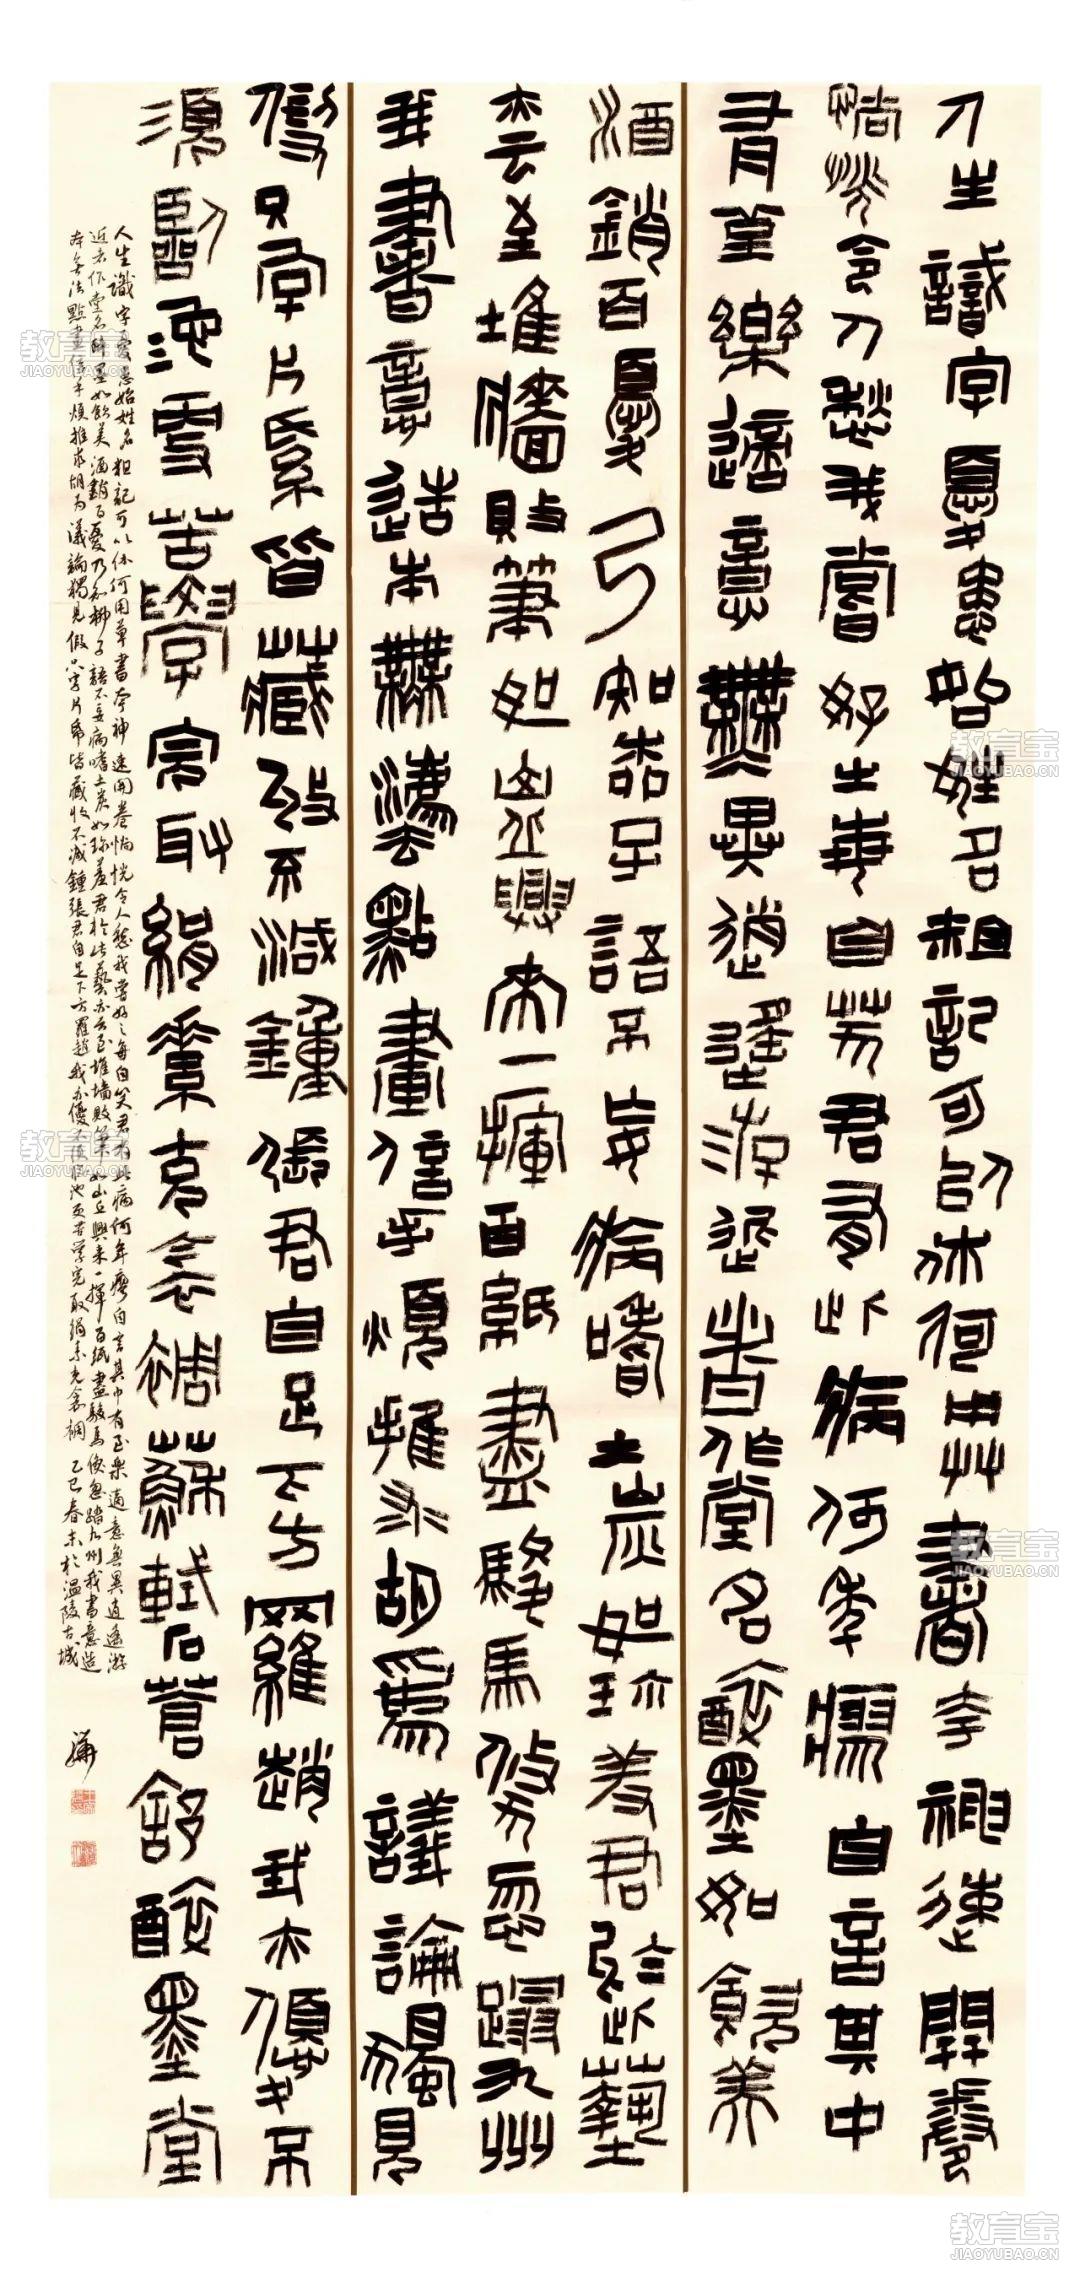 人生識字憂患始姓名粗記可以休何用草書夸神速開卷
惝怳令人愁我嘗好之每自笑君有此病何年瘳自言其中
有至樂適意無異逍遙游近者作堂名醉墨如飲美
酒銷百憂乃知柳子語不妄病嗜土炭如珍羞君於此藝
亦云至堆牆敗筆如山丘興來一揮百紙盡駿馬倏忽踏九州
我書意造本無法點畫信手煩推求胡為議論獨見
假只字片紙皆藏收不減鍾張君自足下方羅趙我亦優不
須臨池雪苦學完取絹素充衾裯蘇軾石蒼舒醉墨堂
人生識字憂患始姓名粗記可以休何用草書夸神速開卷惝怳令人愁我嘗好之每自笑君有此病何年瘳自言其中有至樂適意無異逍遙游
近者作堂名醉墨如飲美酒銷百憂乃知柳子語不妄病嗜土炭如珍羞君於此藝亦云至堆墻敗筆如山丘興來一揮百紙盡駿馬倏忽踏九州我書意造
本無法點畫信手煩推求胡為議論獨見假只字片紙皆藏收不減鍾張君自足下方羅趙我亦優不須臨池更苦學完取絹素充衾裯 乙巳春末於溫陵古城
教育宝
JIAOYUBAO.CN
教育宝
JIAOYUBAO.CN
教育宝
JIAOYUBAO.CN
教育宝
JIAOYUBAO.CN
教育宝
JIAOYUBAO.CN
教育宝
JIAOYUBAO.CN